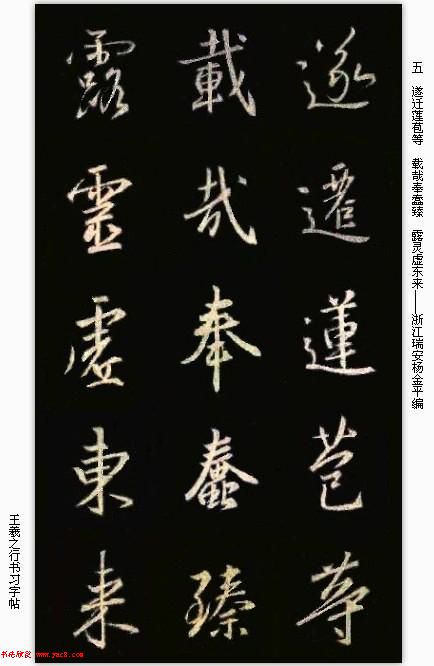 五 遂迁莲苞等 载哉奉蠢臻 露灵虚东来——浙江瑞安杨金平编
遂遷蓮苞等
載哉奉蠢臻
露靈虛東来
王羲之行书习字帖
书法欣赏 www.yac8.com